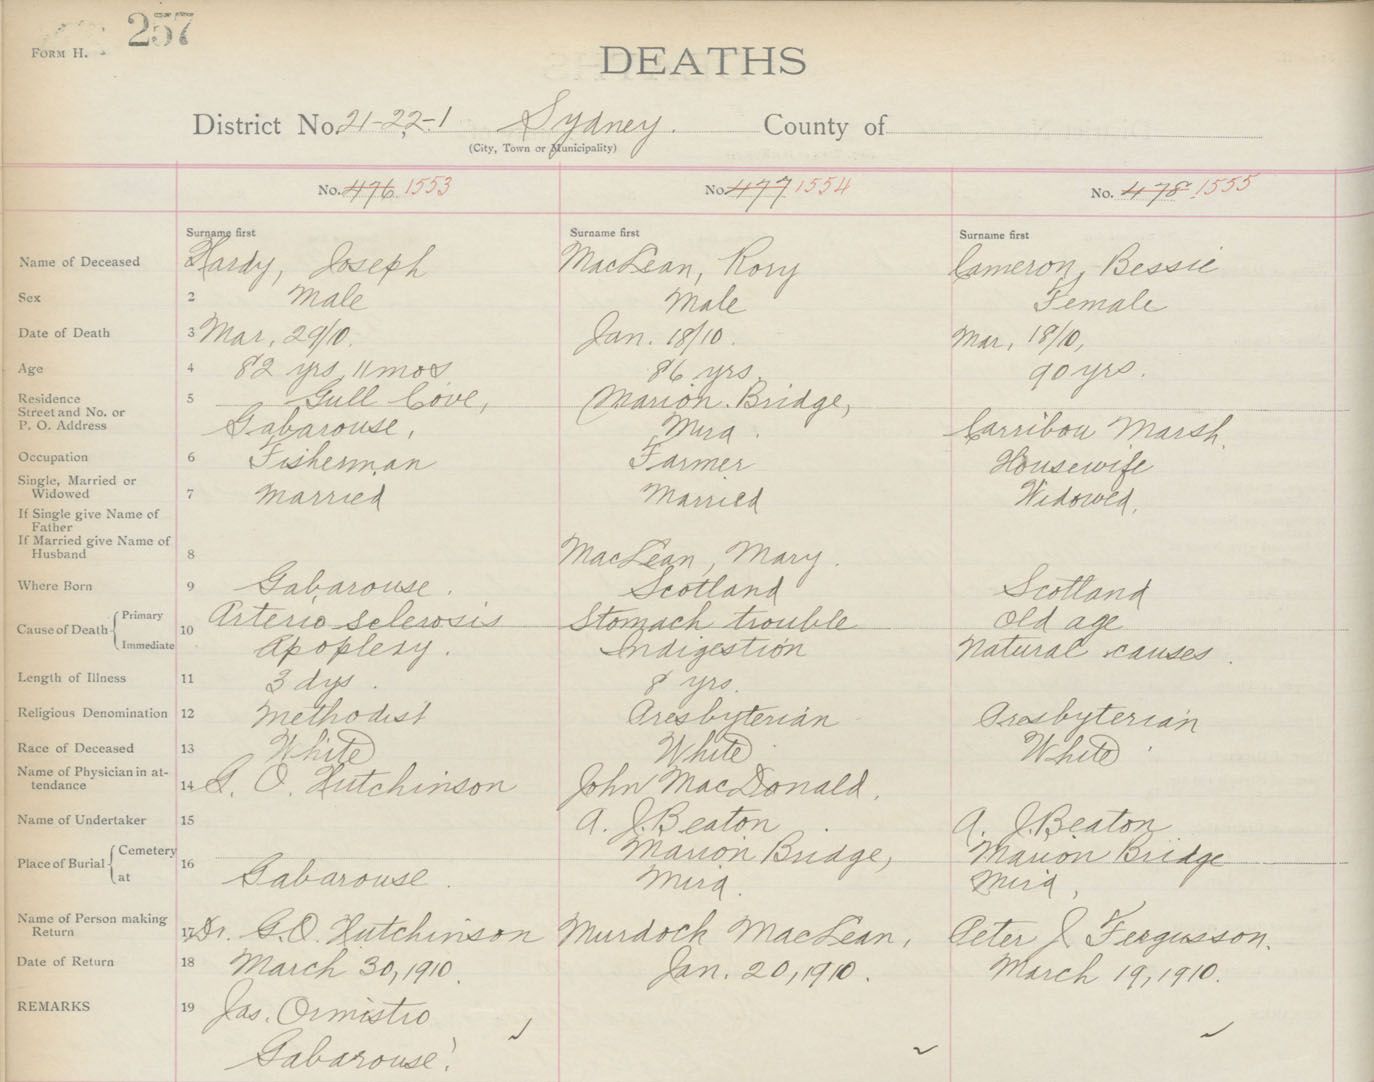 257
FORM H.
DEATHS
District No. 21-22-1 Sydney. County of
(City, Town or Municipality)
No. 476 1553 No. 477 1554 No. 478 1555
Surname first Surname first Surname first
Name of Deceased Hardy, Joseph MacLean, Rory Cameron, Bessie
Sex 2 Male Male Female
Date of Death 3 Mar, 29/10. Jan. 18/10. Mar, 18/10,
Age 4 82 yrs, 11 mos 86 yrs. 90 yrs.
Residence 5 Gull Cove, Marion Bridge,
Street and No. or
P. O. Address Gabarouse, Mira. Carribou Marsh.
Occupation 6 Fisherman Farmer Housewife
Single, Married or
Widowed 7 Married Married Widowed,
If Single give Name of
Father
If Married give Name of
Husband 8 MacLean, Mary.
Where Born 9 Gabarouse. Scotland Scotland
Cause of Death Primary 10 Arterio sclerosis Stomach trouble Old age
Immediate Apoplexy. Indigestion Natural causes.
Length of Illness 11 3 dys. 8 yrs.
Religious Denomination 12 Methodist Presbyterian Presbyterian
Race of Deceased 13 White White White
Name of Physician in at-
tendance 14 G. O. Hutchinson John MacDonald.
Name of Undertaker 15 A. J. Beaton A. J. Beaton
Place of Burial Cemetery 16 Marion Bridge, Marion Bridge
at Gabarouse. Mira. Mira,
Name of Person making
Return 17 Dr. G.O. Hutchinson Murdoch MacLean, Peter J Fergusson.
Date of Return 18 March 30, 1910. Jan. 20, 1910. March 19, 1910.
REMARKS 19 Jas. Ormistro
Gabarouse.